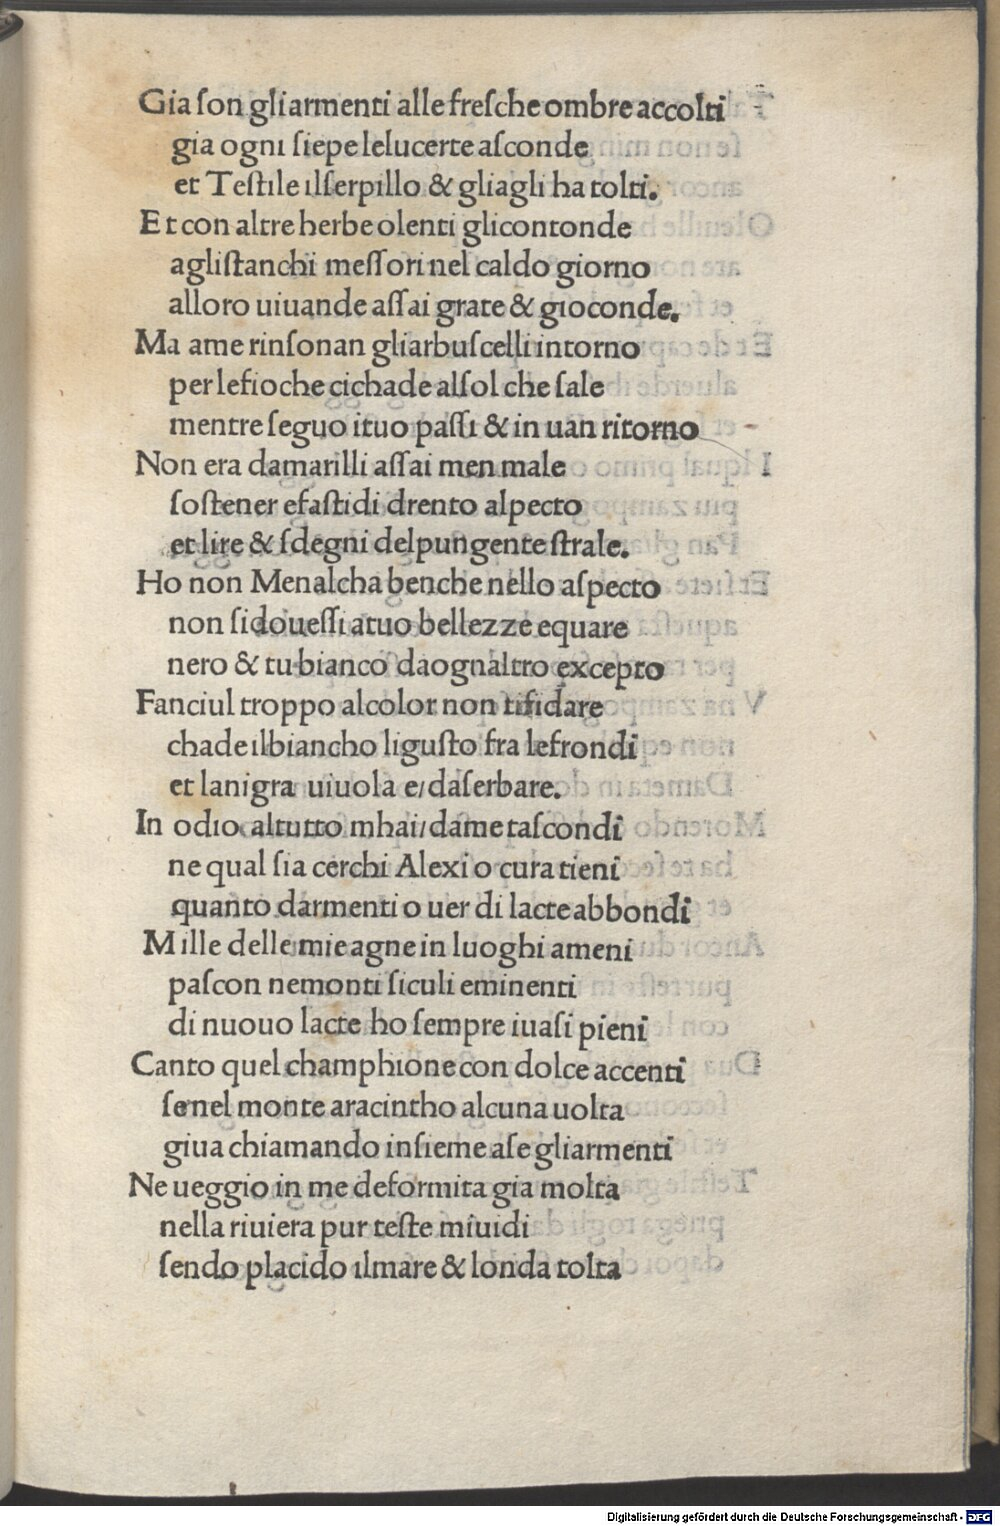 Gia ſon gliarmenti alle freſche ombre accolti
gia ogni ſiepe lelucerte aſconde
et Teſtile ilſerpillo & gliagli ha tolti.
Et con altre herbe olenti glicontonde
agliſtanchi meſſori nel caldo giorno
alloro uiuande aſſai grate & gioconde.
Ma ame rinſonan gliarbuſcelli intorno
per lefioche cichade alſol che ſale
mentre ſeguo ituo paſſi & in uan ritorno
Non era damarilli aſſai men male
ſoſtener efaſtidi drento alpecto
et lire & ſdegni delpungente ſtrale.
Ho non Menalcha benche nello aſpecto
non ſidoueſſi atuo bellezze equare
nero & tu bianco daognaltro excepto
Fanciul troppo alcolor non tifidare
chade ilbiancho liguſto fra lefrondi
et lanigra uiuola e/daſerbare.
In odio altutto mhai/dametaſcondi
ne qual ſia cerchi Alexi o cura tieni
quanto darmenti o uer di lacte abbondi
Mille delle mie agne in luoghi ameni
paſcon nemonti ſiculi eminenti
di nuouo lacte ho ſempre iuaſi pieni
Canto quel champhione con dolce accenti
ſenel monte aracintho alcuna uolta
giua chiamando inſieme aſe gliarmenti
Ne ueggio in me deformita gia molta
nella riuiera pur teſte miuidi
ſendo placido ilmare & londa tolta
Digitalisierung gefördert durch die Deutsche Forschungsgemeinschaft - DFG